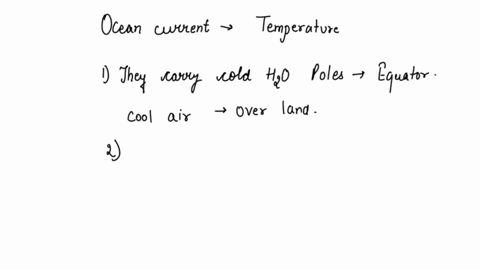 Ocean current → Temperature
1) They carry cold H₂O Poles → Equator.
cool air → over land.
2)